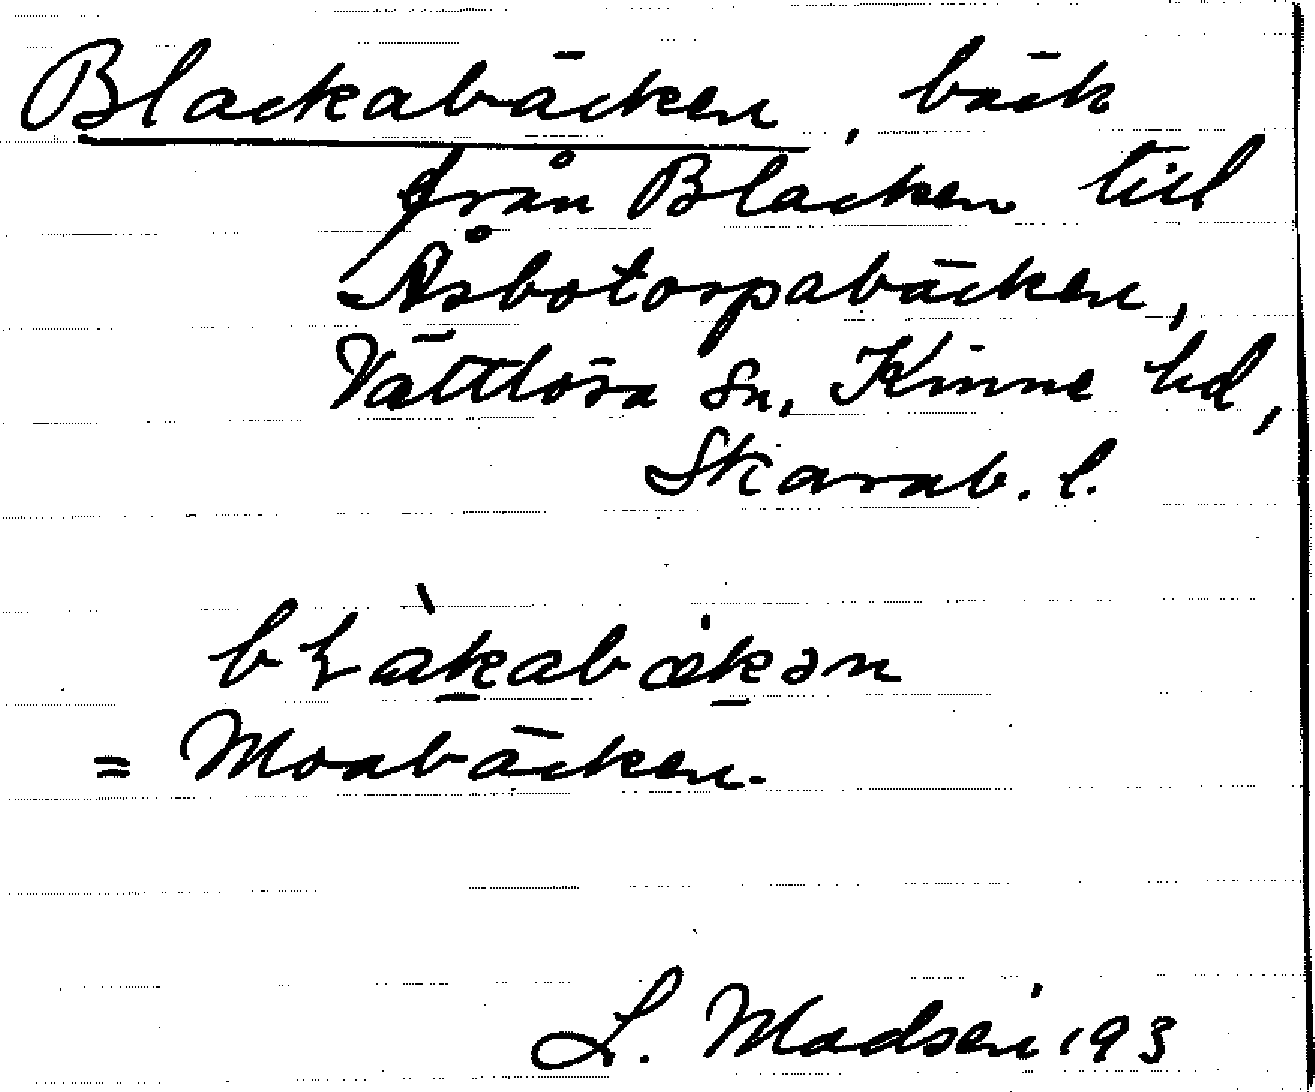 Blackabäcken, bäck
från Blacken till
Åsbotorpabäcken,
Vättlösa sn, Kinne hd,
Skarab. l.
bɫàkabækən
= Moabäcken.
L. Madsén 193